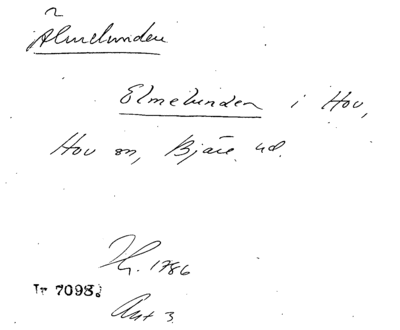 Älmelunden
Elmelunden i Hov,
Hov sn, Bjäre hd.
1786
Ir 7098.
Ant 3.